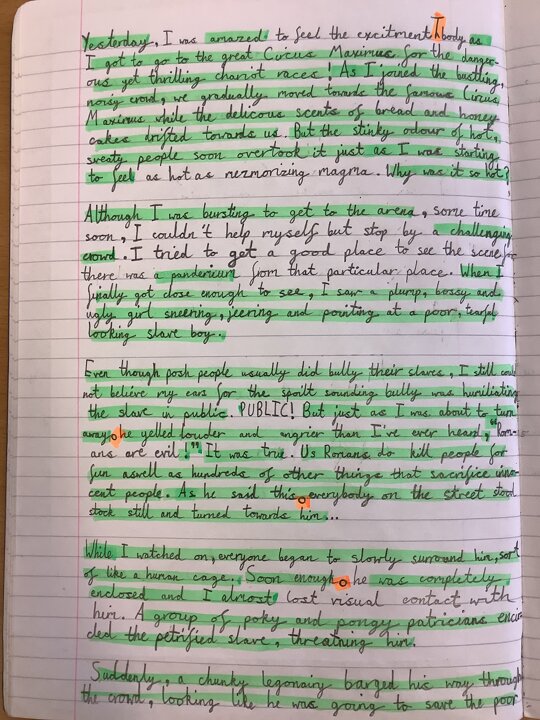 Yesterday, I was amazed to feel the excitment body as
I got to go to the great Circus Maximus for the danger-
ous yet thrilling chariot races! As I joined the bustling,
noisy crowd, we gradually moved towards the famous Circus
Maximus while the delicous scents of bread and honey
cakes drifted towards us. But the stinky odour of hot,
sweaty people soon overtook it just as I was starting
to feel as hot as nezmorizing magma. Why was it so hot?
Although I was bursting to get to the arena, some time
soon, I couldn't help myself but stop by a challenging
crowd. I tried to get a good place to see the scene, for
there was a panderium from that particular place. When I
finally got close enough to see, I saw a plump, bossy and
ugly girl sneering, jeering and pointing at a poor, tearful
looking slave boy.
Even though posh people usually did bully their slaves, I still could
not believe my ears for the spoilt sounding bully was humiliating
the slave in public. PUBLIC! But just as I was about to turn
away, he yelled louder and angrier than I've ever heard, "Rom-
ans are evil!" It was true. Us Romans do kill people for
fun aswell as hundreds of other things that sacrifice inno-
cent people. As he said this, everybody on the street stood
stock still and turned towards him...
While I watched on, everyone began to slowly surround him, sort
of like a human cage. Soon enough, he was completely
enclosed and I almost lost visual contact with
him. A group of poky and pongy patricians encir-
cled the petrified slave, threatning him.
Suddenly, a chunky legonairy barged his way through
the crowd, looking like he was going to save the poor